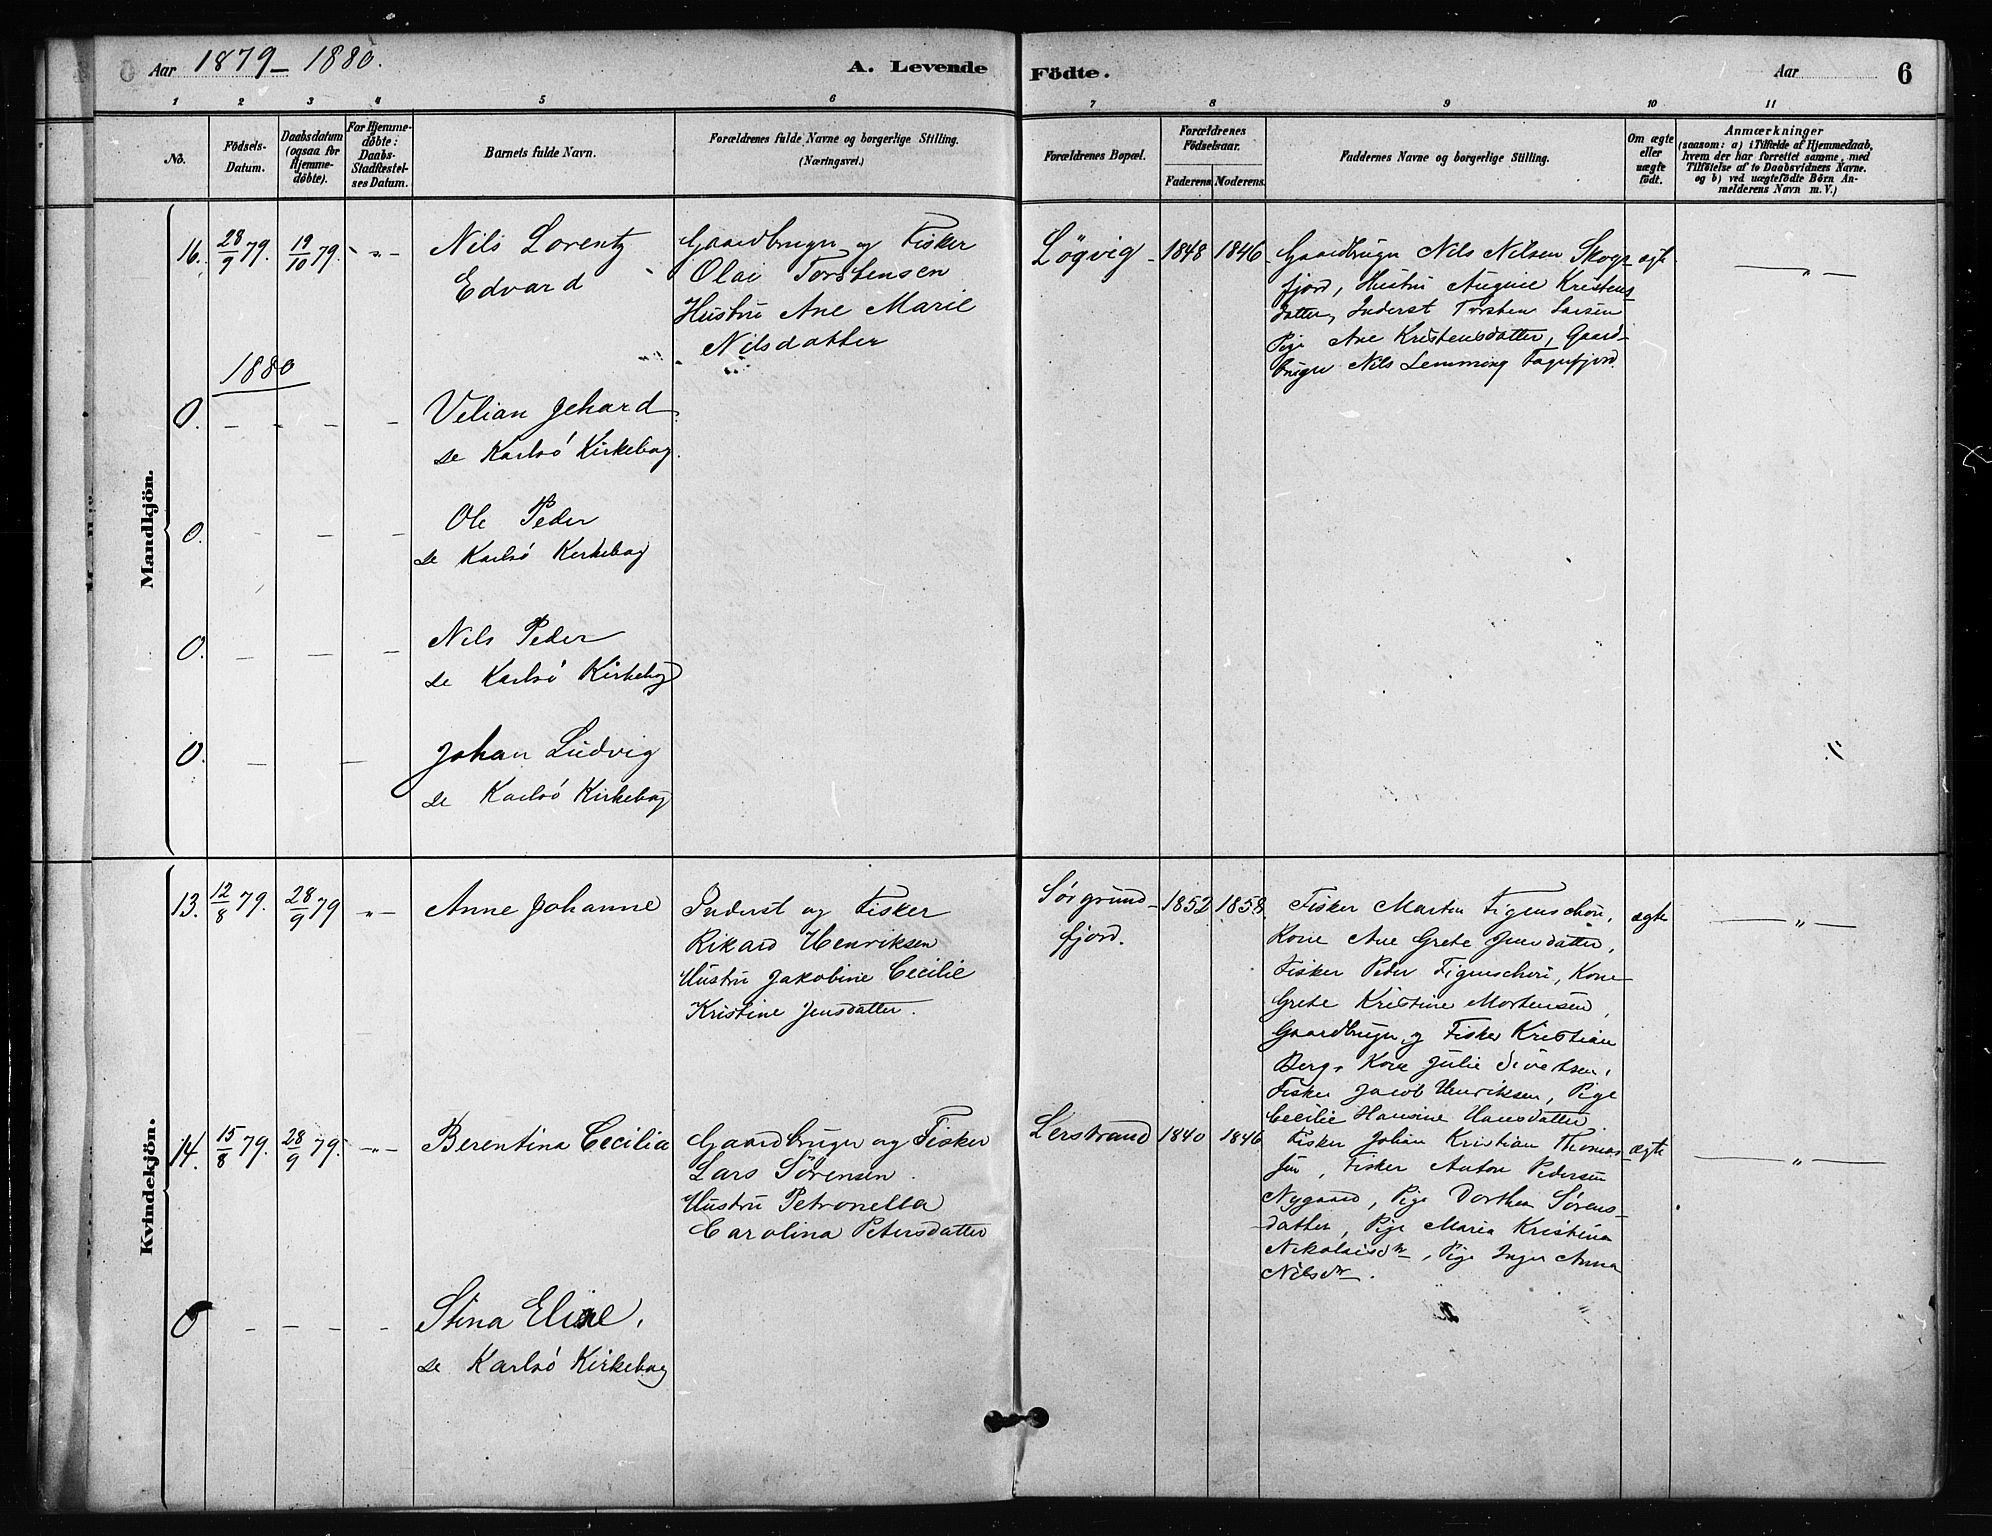 Aar 1879-1880.
A. Levende Födte.
Aar
6
1 2 3 4 5 6 7 8 9 10 11
No.
Födsels-
Datum.
Daabsdatum
(ogsaa for
Hjemme-
döbte).
For Hjemme-
döbte:
Daabs-
Stadfæstel-
ses Datum.
Barnets fulde Navn.
Forældrenes fulde Navne og borgerlige Stilling.
(Næringsvei.)
Forældrenes Bopæl.
Forældrenes
Födselsaar.
Faderens. Moderens.
Faddernes Navne og borgerlige Stilling.
Om ægte
eller
uægte
födt.
Anmærkninger
(saasom: a) i Tilfælde af Hjemmedaab,
hvem der har forrettet samme, med
Tilföielse af to Daabsvidners Navne.
og b) ved uægtefödte Börn An-
melderens Navn m. V.)
Mandkjön.
16. 28/9 79. 19/10 79. - " -
Nils Lorentz
Edvard
Gaardbruger og Fisker
Olai Torstensen
Hustru Ane Marie
Nilsdatter
Løgvig 1848 1846
Gaardbruger Nils Nilsen Skogs-
fjord, Hustru Kristens-
datter, Inderst Torsten Larsen
Pige Ane Kristensdatter, Gaard-
bruger Nils Lemming
ægt.
- " -
1880
0. - - - -
Velian Jehard
se Karlsö Kirkebog.
0. - - - -
Ole Peder
se Karlsö Kirkebog
0. - - -
Nils Peder
se Karlsö Kirkebog
0. - -
Johan Ludvig
se Karlsö Kirkebog
Kvindekjön.
13. 12/8 79. 28/9 79 - " -
Anne Johanne
Inderst og Fisker
Rikard Henriksen
Hustru Jakobine Cecilie
Kristine Jensdatter.
Sørgrund-
fjord.
1852 1858
Fisker Martin Figenschou,
Kone Ane Grete Jensdatter,
Fisker Peder Figenschou, Kone
Grete Kristine Mortensen,
Gaardbruger og Fisker Kristian
Berg, Kone Julie Sivertsen,
Fisker Jacob Henriksen, Pige
Cecilie Hansine Hansdatter.
ægte
- " -
14. 15/8 79. 28/9 79. - " -
Berentina Cecilia
Gaardbruger og Fisker
Lars Sørensen.
Hustru Petronella
Carolina Petersdatter
Lerstrand 1840 1846
Fisker Johan Kristian Thomas-
sen, Fisker Anton Pedersen
Nygaard, Pige Dorthea Sørens-
datter, Pige Maria Kristina
Nikolaisdtr, Pige Inger Anna
Nilsdtr.
ægte
- " -
0 - - - -
Stina Eline.
se Karlsö Kirkebog